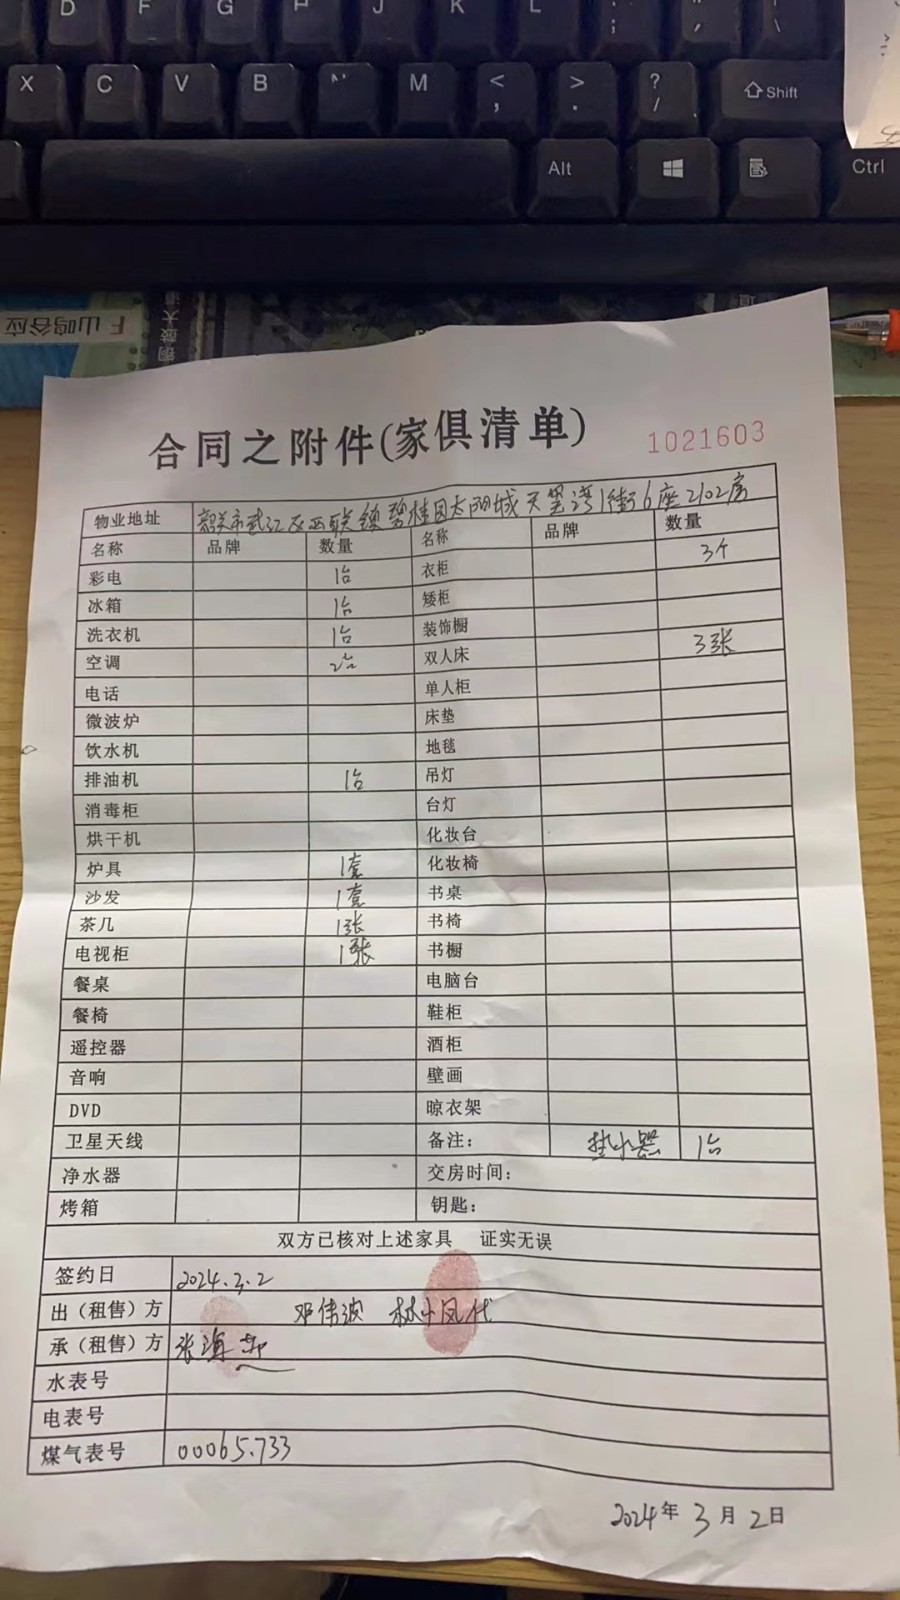 D F G H J K L ; '
X C V B N M < , > . ? / Shift
Alt Ctrl
F 山鸣谷应
铜鼓大道
合同之附件(家俱清单)
1021603
物业地址 韶关市武江区西联镇碧桂园太阳城天玺湾1街6座2102房
名称 品牌 数量 名称 品牌 数量
彩电 1台 衣柜 3个
冰箱 1台 矮柜
洗衣机 1台 装饰橱
空调 2台 双人床 3张
电话 单人柜
微波炉 床垫
饮水机 地毯
排油机 1台 吊灯
消毒柜 台灯
烘干机 化妆台
炉具 1套 化妆椅
沙发 1套 书桌
茶几 1张 书椅
电视柜 1张 书橱
餐桌 电脑台
餐椅 鞋柜
遥控器 酒柜
音响 壁画
DVD 晾衣架
卫星天线 备注: 热水器 1台
净水器 交房时间:
烤箱 钥匙:
双方已核对上述家具 证实无误
签约日 2024.3.2
出（租售）方 邓伟波 林小凤代
承（租售）方 张
水表号
电表号
煤气表号 00065.733
2024年3月2日